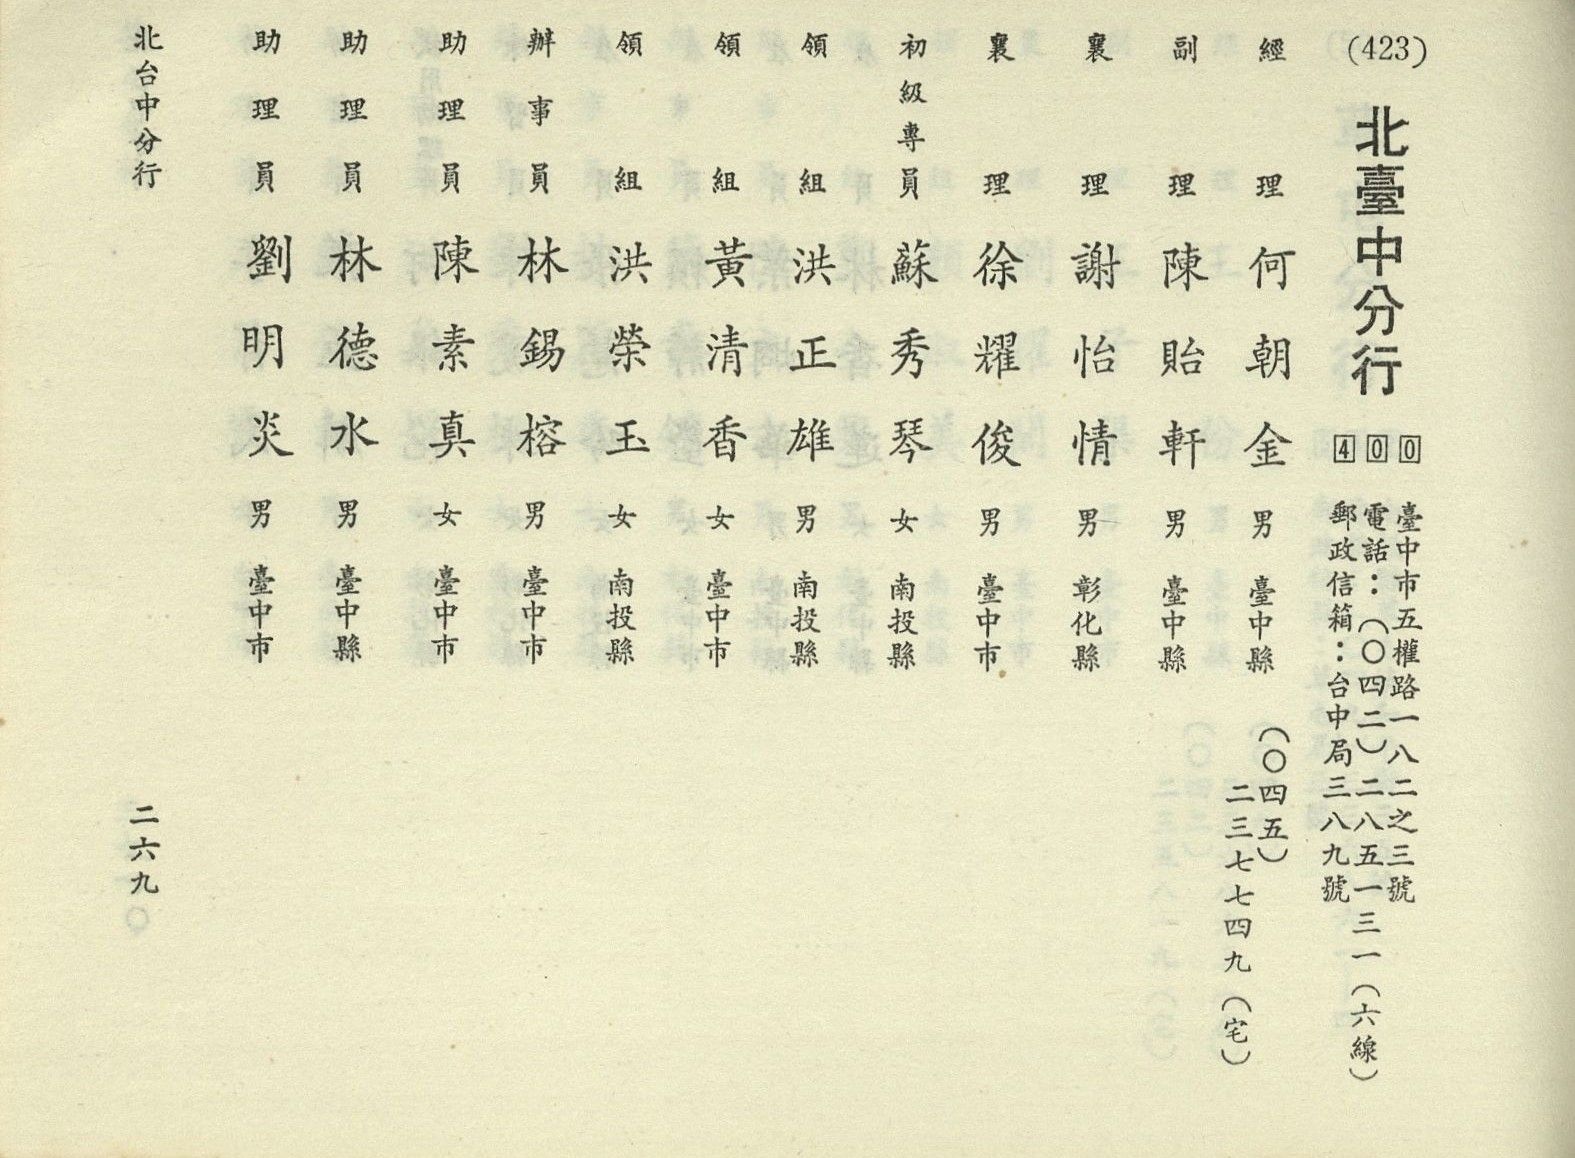 (423)
北臺中分行
400
臺中市五權路一八二之三號
電話：（〇四二）二八五一三一（六線）
郵政信箱：台中局三八九號
經理 何朝金 男 臺中縣
（〇四五）
二三七七四九（宅）
副理 陳貽軒 男 臺中縣
襄理 謝怡情 男 彰化縣
襄理 徐耀俊 男 臺中市
初級專員 蘇秀琴 女 南投縣
領組 洪正雄 男 南投縣
領組 黃清香 女 臺中市
領組 洪榮玉 女 南投縣
辦事員 林錫榕 男 臺中市
助理員 陳素真 女 臺中市
助理員 林德水 男 臺中縣
助理員 劉明炎 男 臺中市
北台中分行
二六九